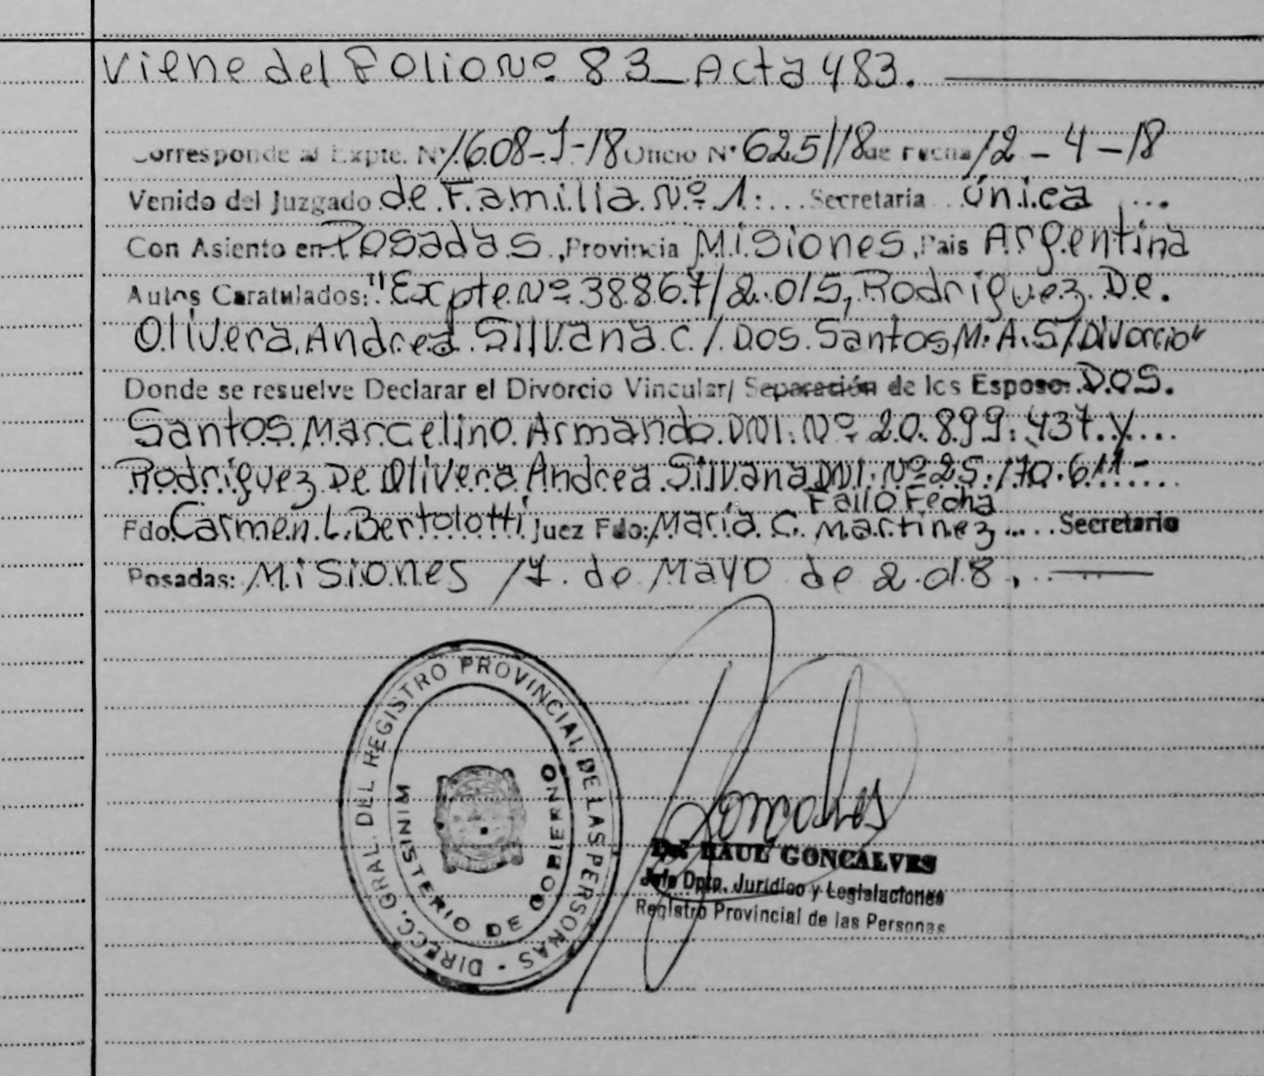 Viene del Folio Nº 83 _ Acta 483.
Corresponde al Expte. Nº 1608-J-18 Oficio Nº 625/18 de Fecha 12-4-18
Venido del Juzgado de Familia Nº 1: ... Secretaria única ...
Con Asiento en Posadas, Provincia Misiones, Pais Argentina
Autos Caratulados: "Expte Nº 38867/2015, Rodríguez De
Olivera Andrea Silvana c/ Dos Santos M. A. S/Divorcio"
Donde se resuelve Declarar el Divorcio Vincular/ Separación de los Esposos: Dos
Santos Marcelino Armando DNI. Nº 20.899.437 y...
Rodríguez De Olivera Andrea Silvana DNI. Nº 25.170.611-
Fallo Fecha
Fdo. Carmen L. Bertolotti Juez Fdo: María C. Martinez .... Secretario
Posadas: Misiones 17 de Mayo de 2018.
DIRECC. GRAL. DEL REGISTRO PROVINCIAL DE LAS PERSONAS -
MINISTERIO DE GOBIERNO
Goncalves
Dr. RAUL GONCALVES
Jefe Dpto. Jurídico y Legislaciones
Registro Provincial de las Personas